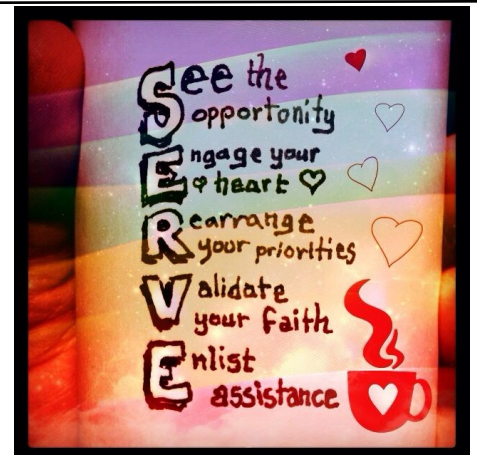 See the
opportunity
Engage your
heart
Rearrange
your priorities
Validate
your faith
Enlist
assistance